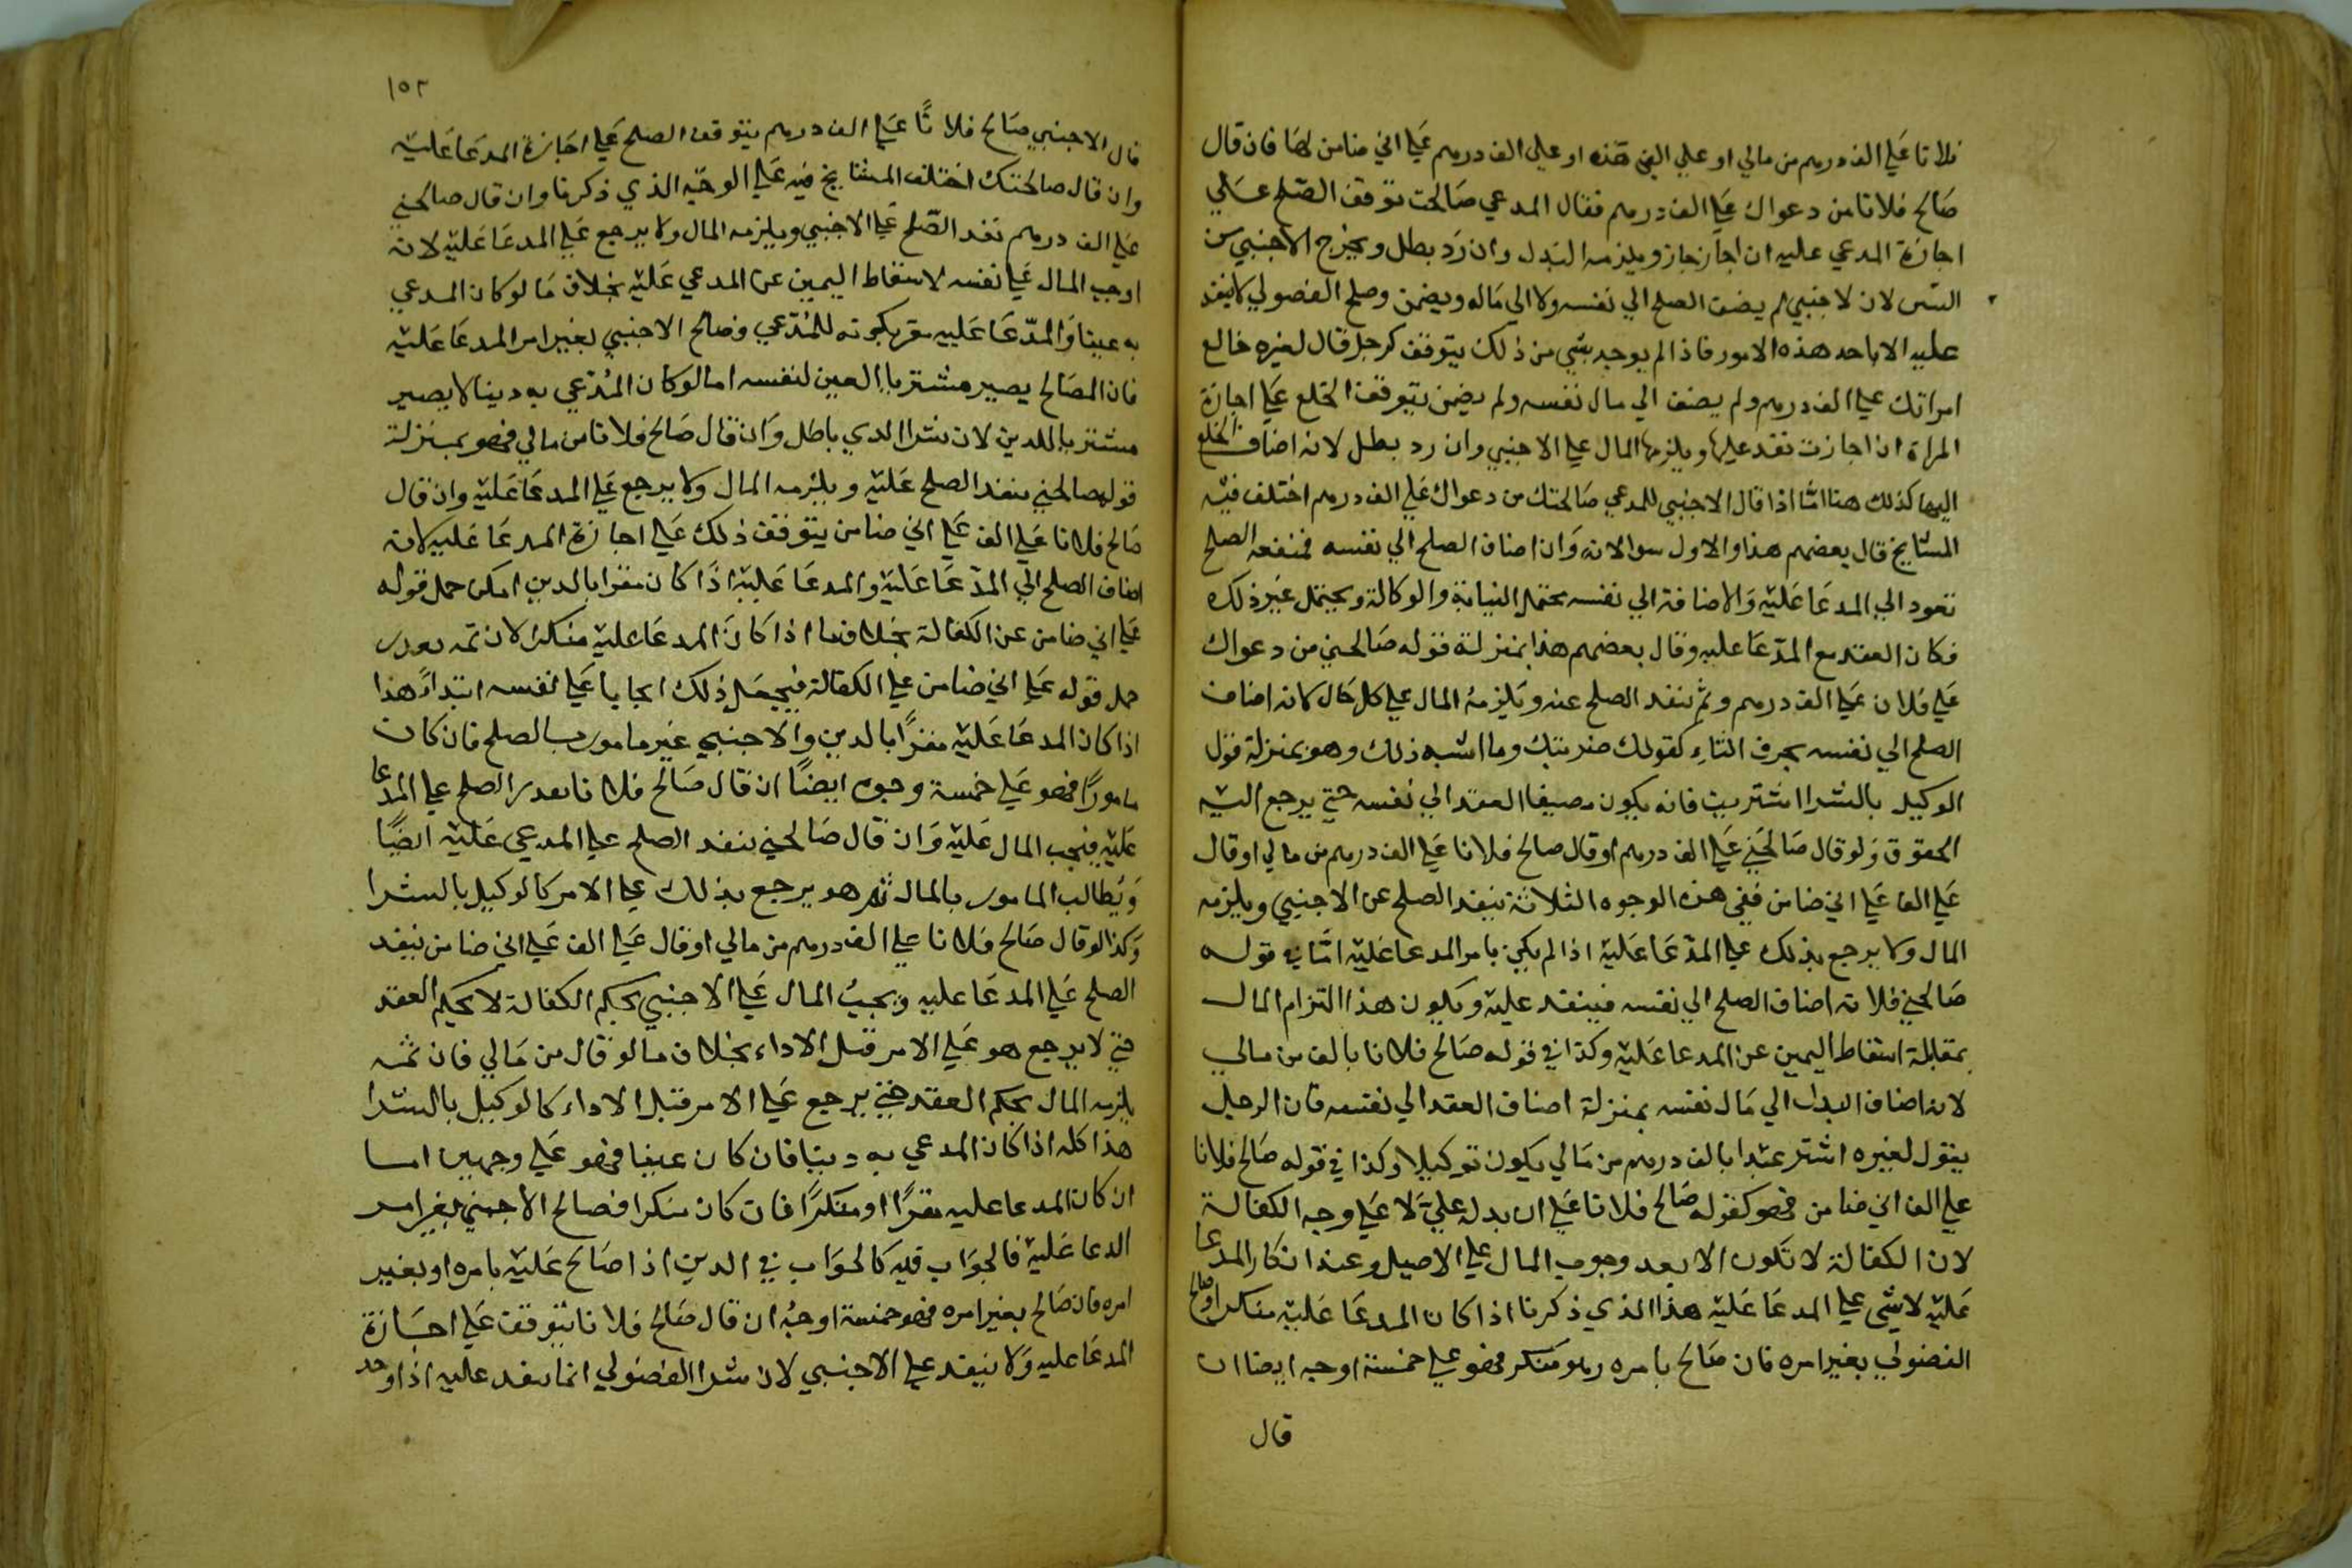 فلانا علي الف درهم من مالي او علي الفي هذه او علي الف درهم علي اني ضامن لها فان قال
صالح فلانا من دعواك علي الف درهم فقال المدعي صالحت توقف الصلح علي
اجازة المدعي عليه ان اجاز جاز ويلزمه البدل وان رد بطل ويخرج الاجنبي من
البين لان لاجنبي لم يضف الصلح الي نفسه ولا الي ماله ويضمن وصلح الفضولي لا ينفد
عليه الا باحد هذه الامور فاذا لم يوجد شي من ذلك يتوقف كرجل قال لغيره خالع
امراتك علي الف درهم ولم يضف الي مال نفسه ولم يضمن يتوقف الخلع علي اجازة
المراة ان اجازت نفد عليها ويلزمها المال علي الاجنبي وان رد بطل لانه اضاف الخلع
اليها كذلك هنا امّا اذا قال الاجنبي للمدعي صالحتك من دعواك علي الف درهم اختلف فيه
المشايخ قال بعضهم هذا والاول سوا لانه وان اضاف الصلح الي نفسه فمنفعه الصلح
تعود الي المدعا عليه والاضافة الي نفسه تحتمل النيابة والوكالة ويحتمل غير ذلك
فكان العقد مع المدّعا عليه وقال بعضهم هذا بمنزلة قوله صالحني من دعواك
علي فلان علي الف درهم وثم ينفد الصلح عنه ويلزمهُ المال علي كل حال كانه اضاف
الصلح الي نفسه بحرف التاء كقولك ضربتك وما اشبه ذلك وهو بمنزلة قول
الوكيل بالشرا اشتريت فانه يكون مضيفا العقد الي نفسه حتي يرجع اليه
الحقوق ولو قال صالحني علي الف درهم او قال صالح فلانا علي الف درهم من مالي او قال
علي الف علي اني ضامن ففي هذه الوجوه الثلاثة ينفد الصلح عن الاجنبي ويلزمه
المال ولا يرجع بذلك علي المدّعا عليه اذا لم يكن بامر المدعا عليه امّا في قوله
صالحني فلانه اضاف الصلح الي نفسه فينفد عليه ويكون هذا التزام المال
بمقابلة اسقاط اليمين عن المدعا عليه وكذا في قوله صالح فلانا بالف من مالي
لانه اضاف البدل الي مال نفسه بمنزلة اضاف العقد الي نفسه فان الرجل
يقول لغيره اشتر عبدا بالف درهم من مالي يكون توكيلا وكذا في قوله صالح فلانا
علي الف اني ضامن فهو كقوله صالح فلانا علي ان بدله عليّ لا علي وجه الكفالة
لان الكفالة لا تكون الا بعد وجوب المال علي الاصيل وعند انكار المدعا
عليه لا شي علي المدعا عليه هذا الذي ذكرنا اذا كان المدعا عليه منكرا وصالح
الفضولي بغير امره فان صالح بامره وهو منكر فهو علي خمسة اوجه ايضا ان
قال
١٥٢
قال الاجنبي صالح فلانًا علي الف درهم يتوقف الصلح علي اجازة المدعا عليه
وان قال صالحتك اختلف المشايخ فيه علي الوجه الذي ذكرنا وان قال صالحني
علي الف درهم نفد الصّلح علي الاجنبي ويلزمه المال ولا يرجع علي المدعا عليه لانه
اوجب المال علي نفسه لاسقاط اليمين عن المدعي عليه بخلاف ما لو كان المدعي
به عينا والمدّعا عليه مقر بكونه للمُدّعي وصالح الاجنبي بغير امر المدعا عليه
فان المصالح يصير مشتريا العين لنفسه اما لو كان المُدّعي به دينا لا يصير
مشتريا للدين لان شرا الدين باطل وان قال صالح فلانا من مالي فهو بمنزلة
قوله صالحني ينفد الصلح عليه ويلزمه المال ولا يرجع علي المدعا عليه وان قال
صالح فلانا علي الف علي اني ضامن يتوقف ذلك علي اجازة المدعا عليه لانه
اضاف الصلح الي المدّعا عليه والمدعا عليه اذا كان مقرا بالدين امكن حمل قوله
علي اني ضامن عن الكفالة بخلاف ما اذا كان المدعا عليه منكرا لان ثمه بعدر
حمل قوله علي اني ضامن علي الكفالة فيجعل ذلك ايجابا علي نفسه ابتداءً هذا
اذا كان المدعا عليه مقرًا بالدين والاجنبي غير مامور بالصلح فان كان
مامورًا فهو علي خمسة وجوه ايضًا ان قال صالح فلانا نفد الصلح علي المدعا
عليه فيجب المال عليه وان قال صالحني ينفد الصلح علي المدعي عليه ايضًا
ويُطالب المامور بالمال ثم هو يرجع بذلك علي الامر كالوكيل بالشرا
وكذا لو قال صالح فلانا علي الف درهم من مالي او قال علي الف علي اني ضامن ينفد
الصلح علي المدعا عليه ويجبُ المال علي الاجنبي بحكم الكفالة لا بحكم العقد
حتي لا يرجع هو علي الامر قبل الاداء بخلاف ما لو قال من مالي فان ثمه
يلزمه المال بحكم العقد حتي يرجع علي الامر قبل الاداء كالوكيل بالشرا
هذا كله اذا كان المدعي به دينا فان كان عينا فهو علي وجهين اما
ان كان المدعا عليه مقرًا او منكرًا فان كان منكرا فصالح الاجنبي بغير امر
الدعا عليه فالجواب فيه كالجواب في الدين اذا صالح عليه بامره او بغير
امره فان صالح بغير امره فهو خمسة اوجهُ ان قال صالح فلانا يتوقف علي اجازة
المدعا عليه ولا ينفد علي الاجنبي لان شرا الفضولي انما ينفد عليه اذا وجد